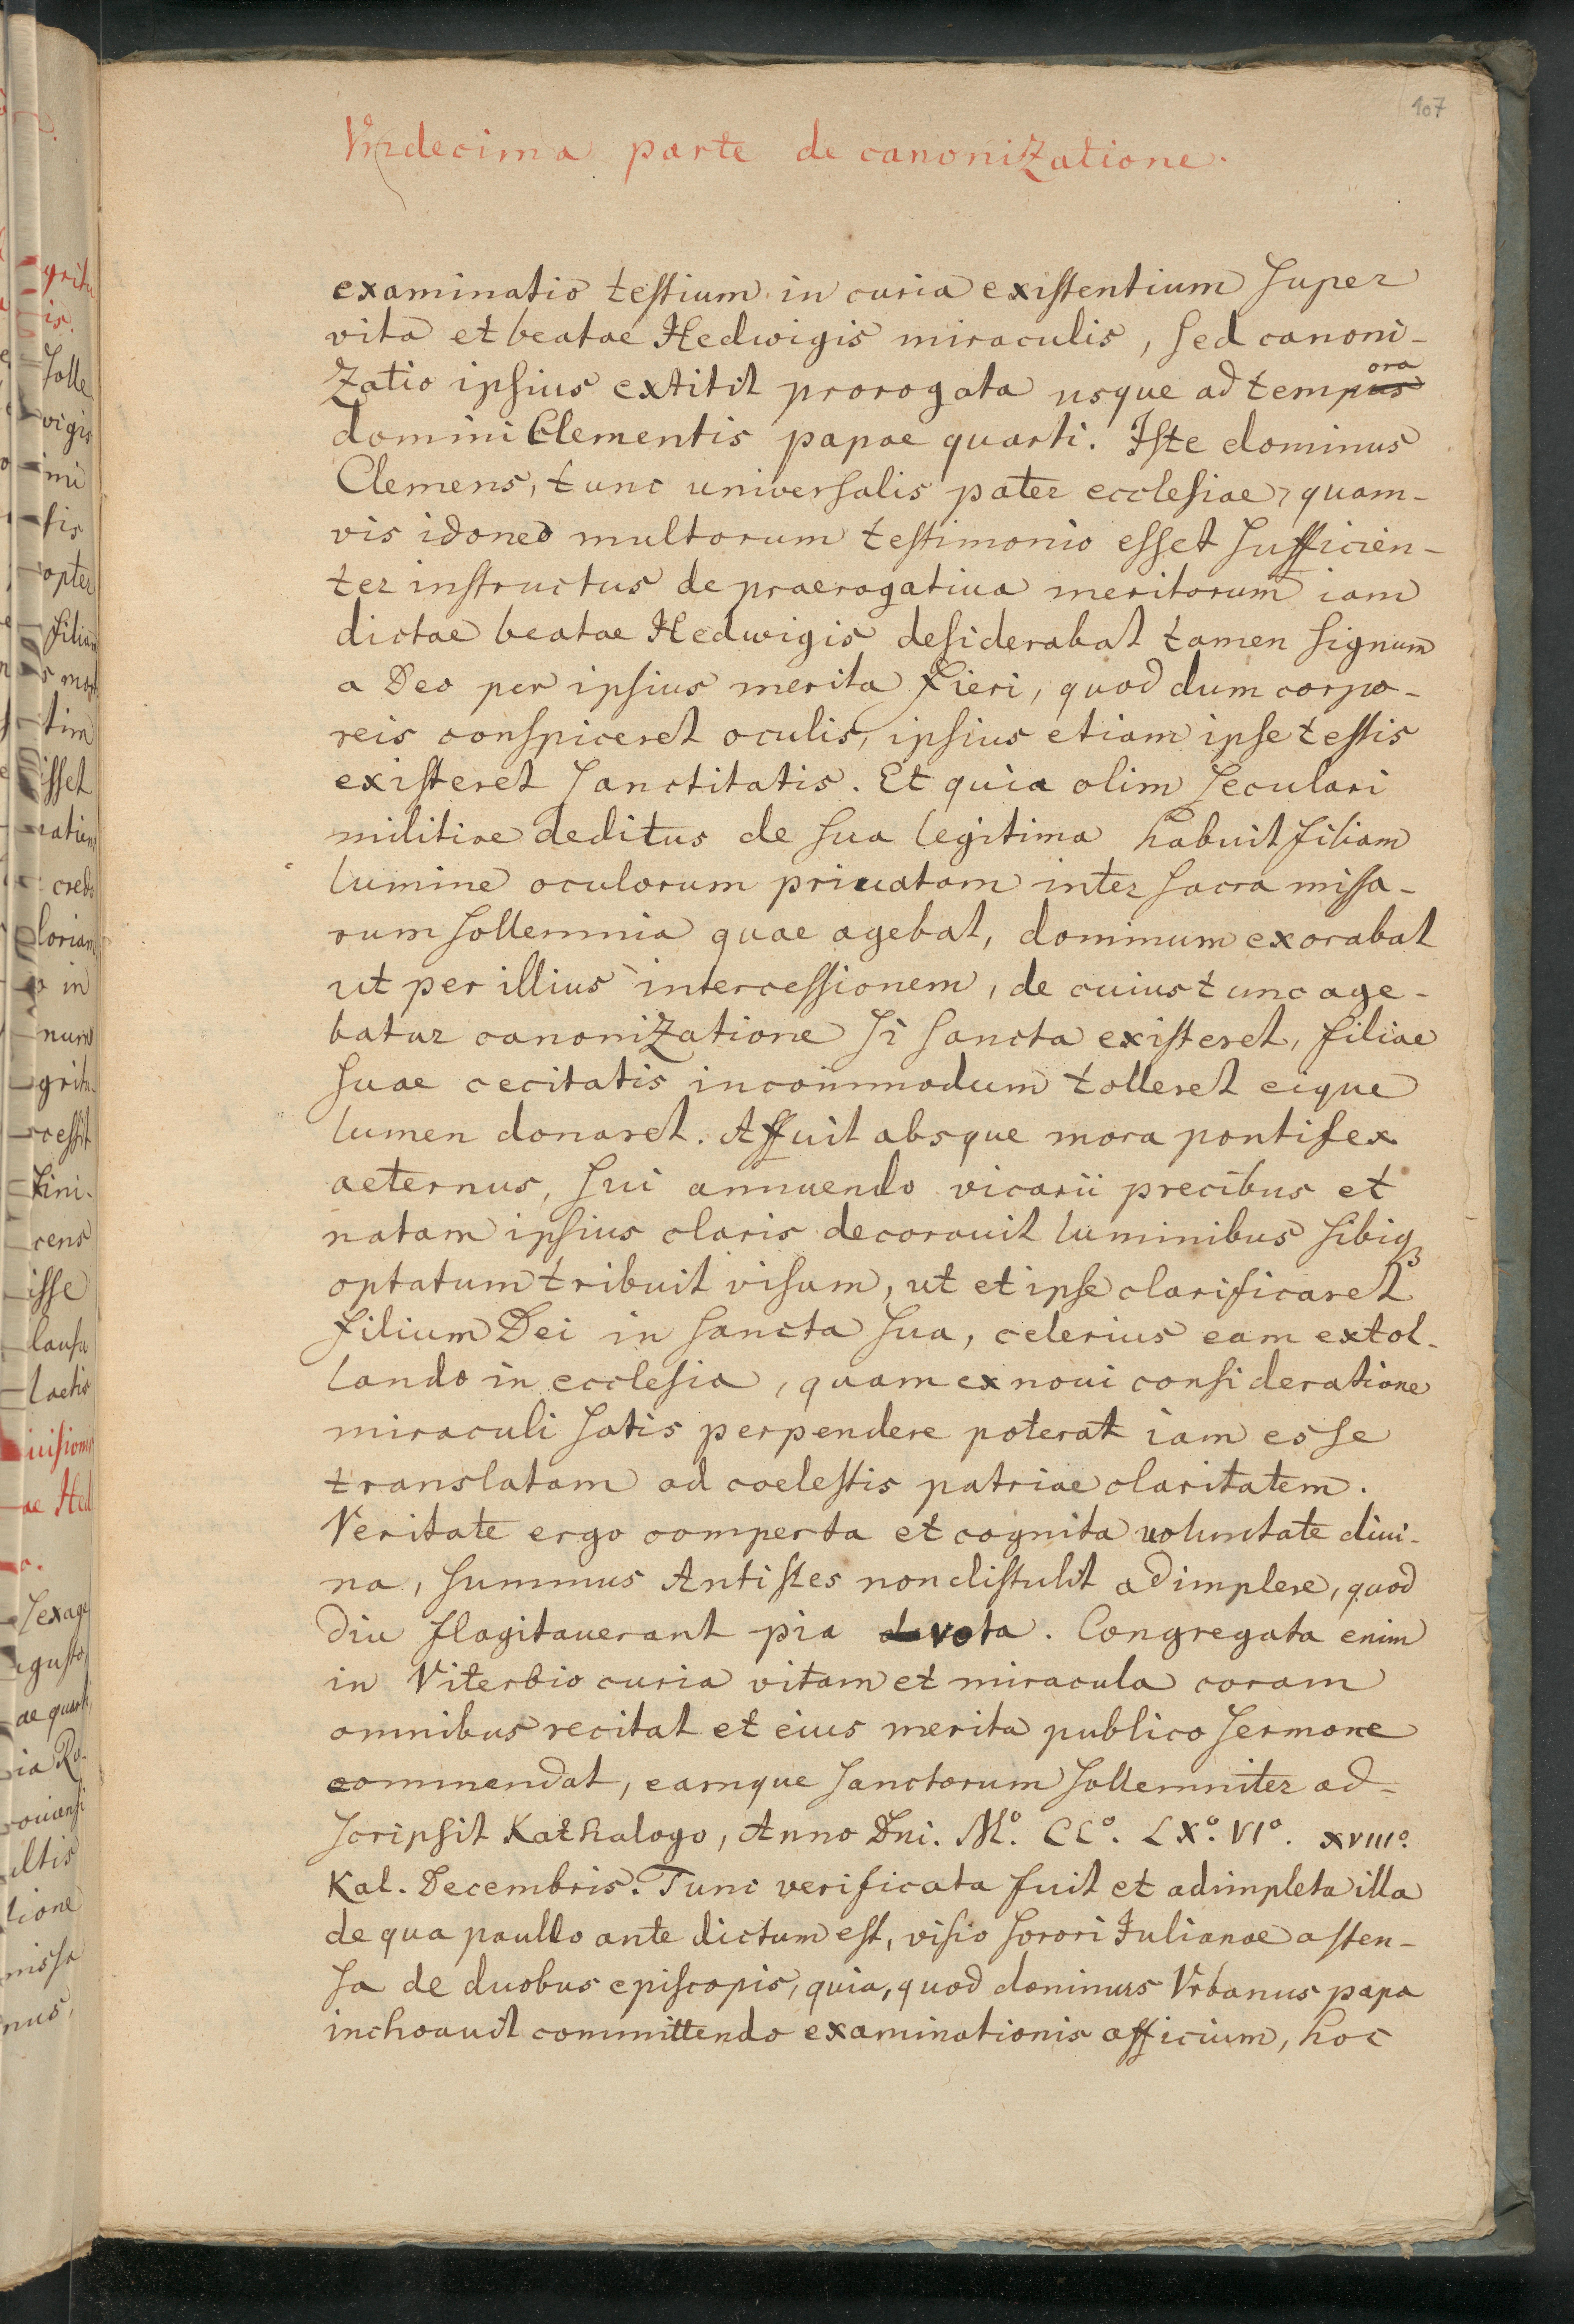 107
Vndecima parte de canonizatione.
examinatio testium in curia existentium super
vita et beatae Hedwigis miraculis, sed canoni-
zatio ipsius extitit prorogata usque ad tempus ora
domini Clementis papae quarti. Iste dominus
Clemens, tunc universalis pater ecclesiae, quam-
vis idoneo multorum testimonio esset sufficien-
ter instructus de praerogatiua meritorum iam
dictae beatae Hedwigis desiderabat tamen signum
a Deo per ipsius merita fieri, quod dum corpo-
reis conspiceret oculis, ipsius etiam ipse testis
existeret sanctitatis. Et quia olim seculari
militiae deditus de sua legitima habuit filiam
lumine oculorum priuatam inter sacra missa-
rum sollemnia quae agebat, dominum exorabat
ut per illius intercessionem, de cuius tunc age-
batur canonizatione si sancta existeret, filiae
suae cecitatis incommodum tolleret eique
lumen donaret. Affuit absque mora pontifex
aeternus, sui annuendo vicarii precibus et
natam ipsius claris decorauit luminibus sibiq3
optatum tribuit visum, ut et ipse clarificaret
filium Dei in sancta sua, celerius eam extol-
lando in ecclesia, quam ex noui consideratione
miraculi satis perpendere poterat iam esse
translatam ad coelestis patriae claritatem.
Veritate ergo comperta et cognita uoluntate diui-
na, summus Antistes non distulit adimplere, quod
diu flagitauerant pia vota. Congregata enim
in Viterbio curia vitam et miracula coram
omnibus recitat et eius merita publico sermone
commendat, eamque sanctorum sollemniter ad-
scripsit Kathalogo, Anno Dni. Mº. CCº. LXº. VIº. XVIIIº.
Kal. Decembris. Tunc verificata fuit et adimpleta illa
de qua paullo ante dictum est, visio sorori Iulianae osten-
sa de duobus episcopis, quia, quod dominus Vrbanus papa
inchoauit committendo examinationis officium, hoc